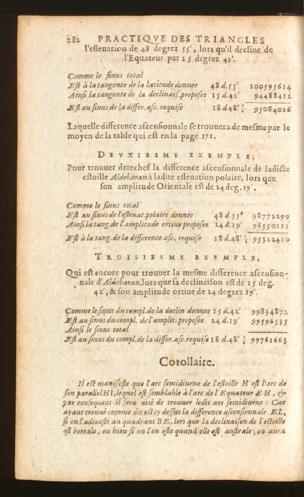 282 PRACTIQVE DES TRIANGLES
l'esleuation de 48 degrez 55', lors qu'il decline de
l'Equateur par 15 degrez 42'.
Comme le sinus total
Est à la tangente de la latitude donnee 48 d. 55' 100595614
Ainsi la tangente de la declinais. proposee 15 d. 42' 94488412
Est au sinus de la differ. asc. requise 18 d. 48' 95084026
Laquelle difference ascensionnale se trouuera de mesme par le
moyen de la table qui est en la page 171.
DEVXIESME EXEMPLE;
Pour trouuer derechef la difference ascensionnale de ladicte
estoille Aldebaran à ladite esleuation polaire, lors que
son amplitude Orientale est de 24 deg. 19'.
Comme le sinus total
Est au sinus de l'esleuat. polaire donnee 48 d. 55' 98772199
Ainsi la tang. de l'amplitude ortiue proposee 24 d. 19' 96550211
Est à la tang. de la difference asc. requise 18 d. 48' 95322410
TROISIESME EXEMPLE,
Qui est encore pour trouuer la mesme difference ascension-
nale d'Aldebaran, lors que sa declinaison est de 15 deg.
42', & son amplitude ortiue de 24 degrez 19'.
Comme le sinus du compl. de la declin donnee 15 d. 42' 99834872
Est au sinus du compl. de l'amplit. proposee 24 d. 19' 99596535
Ainsi le sinus total
Est au sinus du compl. de la differ. asc. requise 18 d. 48' 99761663
Corollaire.
Il est manifeste que l'arc semidiurne de l'estoille H est l'arc de
son parallel HI, lequel est semblable à l'arc de l'Equateur EH, &
par consequent il sera aisé de trouuer ledit arc semidiurne: Car
ayant trouué comme dit est cy dessus la difference ascensionnale EL,
si on l'adiouste au quadrant BE, lors que la declinaison de l'estoille
est boreale, ou bien si on l'en oste quand elle est australe; on aura